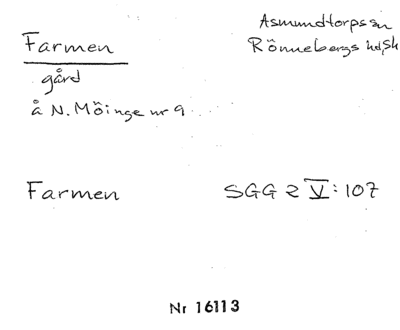 Farmen
gård
å N. Möinge nr 9
Asmundtorps sn
Rönnebergs hd, Sk
Farmen SGG 2 V:107
Nr 16113